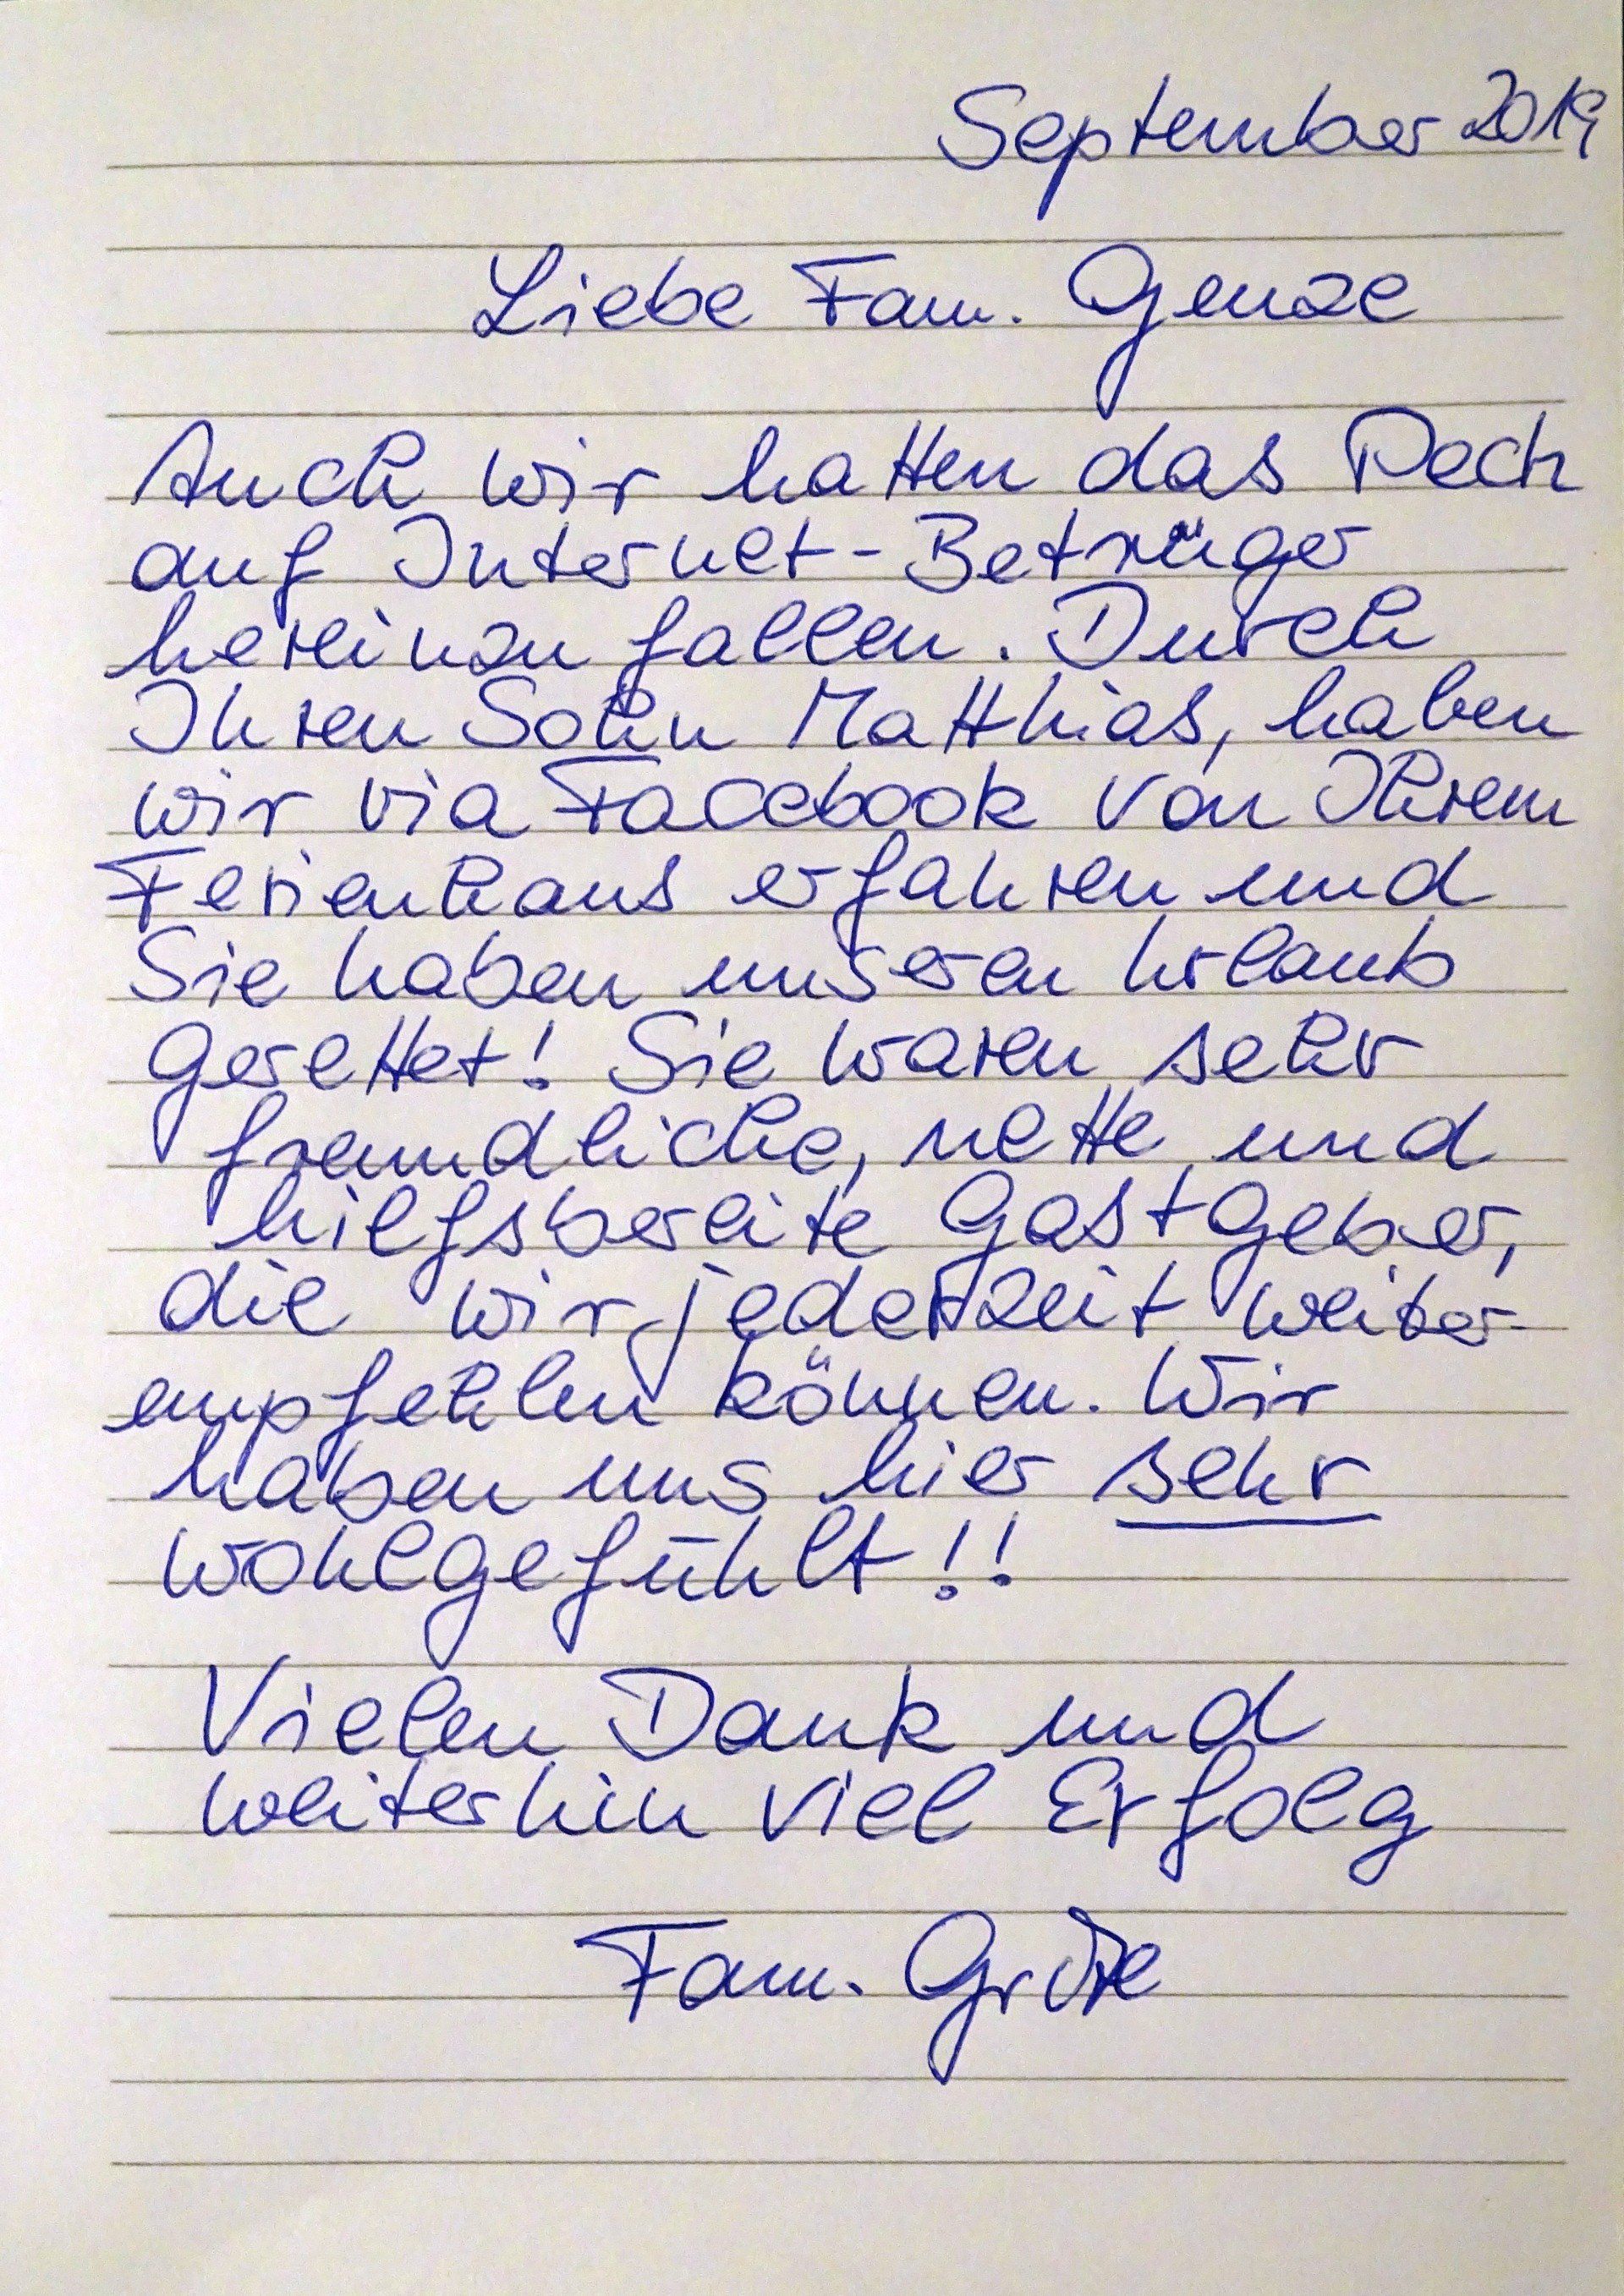 September 2019
Liebe Fam. Genze
Auch wir hatten das Pech
auf Internet-Betrüger
hereinzufallen. Durch
Ihren Sohn Matthias, haben
wir via Facebook von Ihrem
Ferienhaus erfahren und
Sie haben unseren Urlaub
gerettet! Sie waren sehr
freundliche, nette und
hilfsbereite Gastgeber,
die wir jederzeit weiter-
empfehlen können. Wir
haben uns hier sehr
wohlgefühlt!!
Vielen Dank und
weiterhin viel Erfolg
Fam.